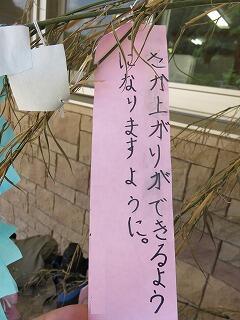 さか上がりができるよう
になりますように。